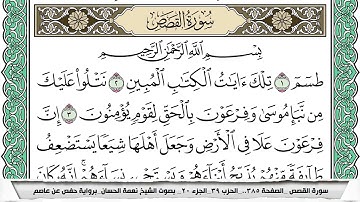 سورة القصص
بِسْمِ اللَّهِ الرَّحْمَٰنِ الرَّحِيمِ
طسٓمٓ ١ تِلْكَ ءَايَٰتُ ٱلْكِتَٰبِ ٱلْمُبِينِ ٢ نَتْلُوا۟ عَلَيْكَ
مِن نَّبَإِ مُوسَىٰ وَفِرْعَوْنَ بِٱلْحَقِّ لِقَوْمٍ يُؤْمِنُونَ ٣ إِنَّ
فِرْعَوْنَ عَلَا فِى ٱلْأَرْضِ وَجَعَلَ أَهْلَهَا شِيَعًا يَسْتَضْعِفُ
طَآئِفَةً مِّنْهُمْ يُذَبِّحُ أَبْنَآءَهُمْ وَيَسْتَحْىِۦ نِسَآءَهُمْ إِنَّهُۥ كَانَ
سورة القصص _ الصفحة ٣٨٥ _ الحزب ٣٩ _ الجزء ٢٠ _ بصوت الشيخ نعمة الحسان برواية حفص عن عاصم